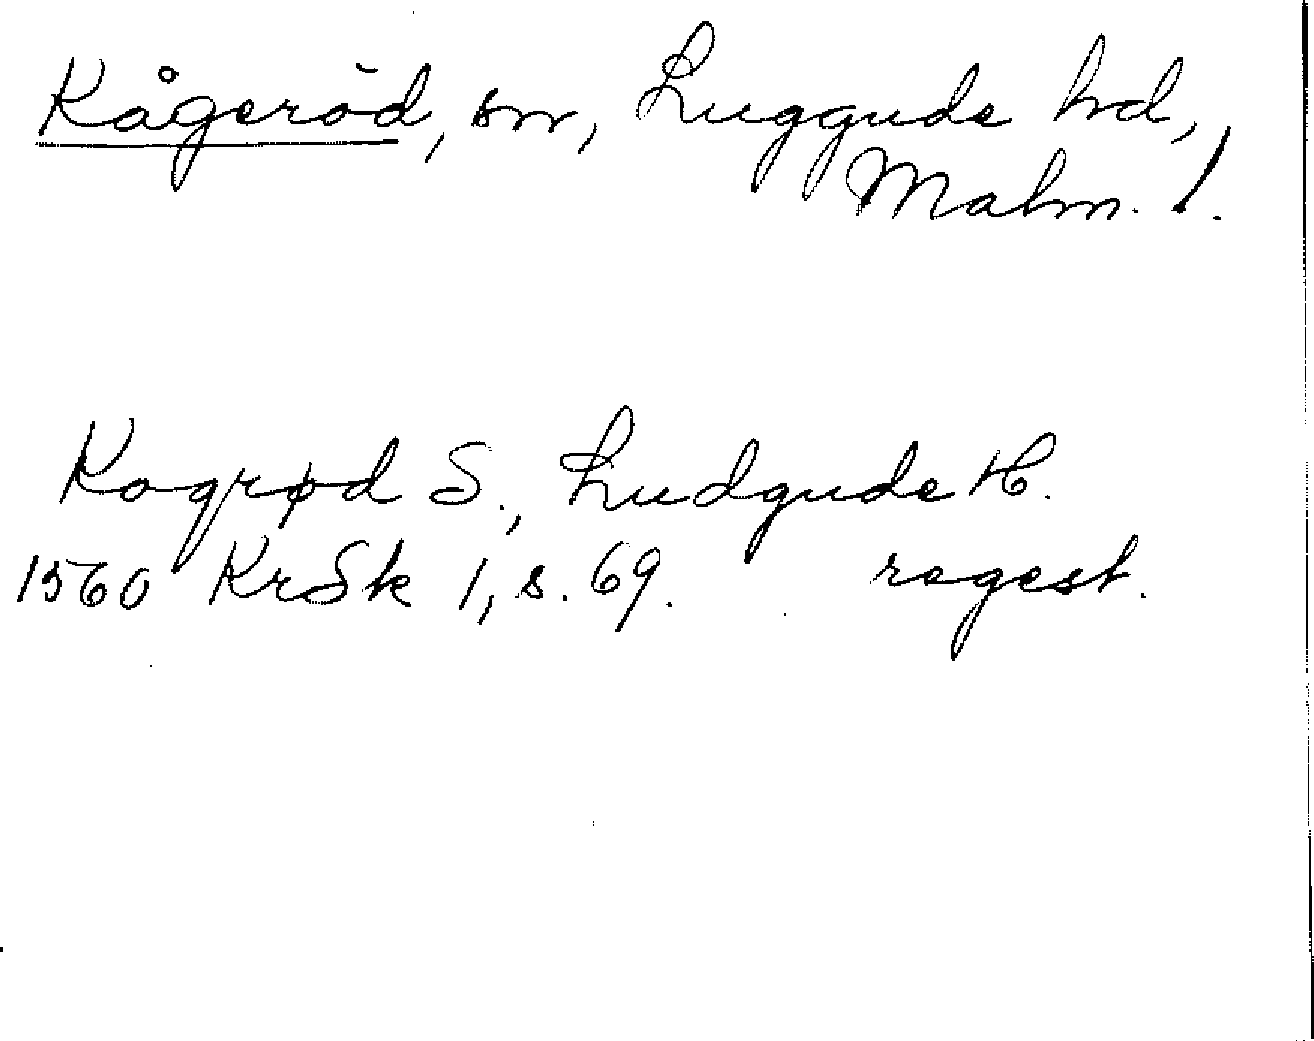 Kågeröd, sn, Luggude hd,
Malm. l.
Kogrød S., Ludgude H.
1560 KrSk 1, s. 69. regest.